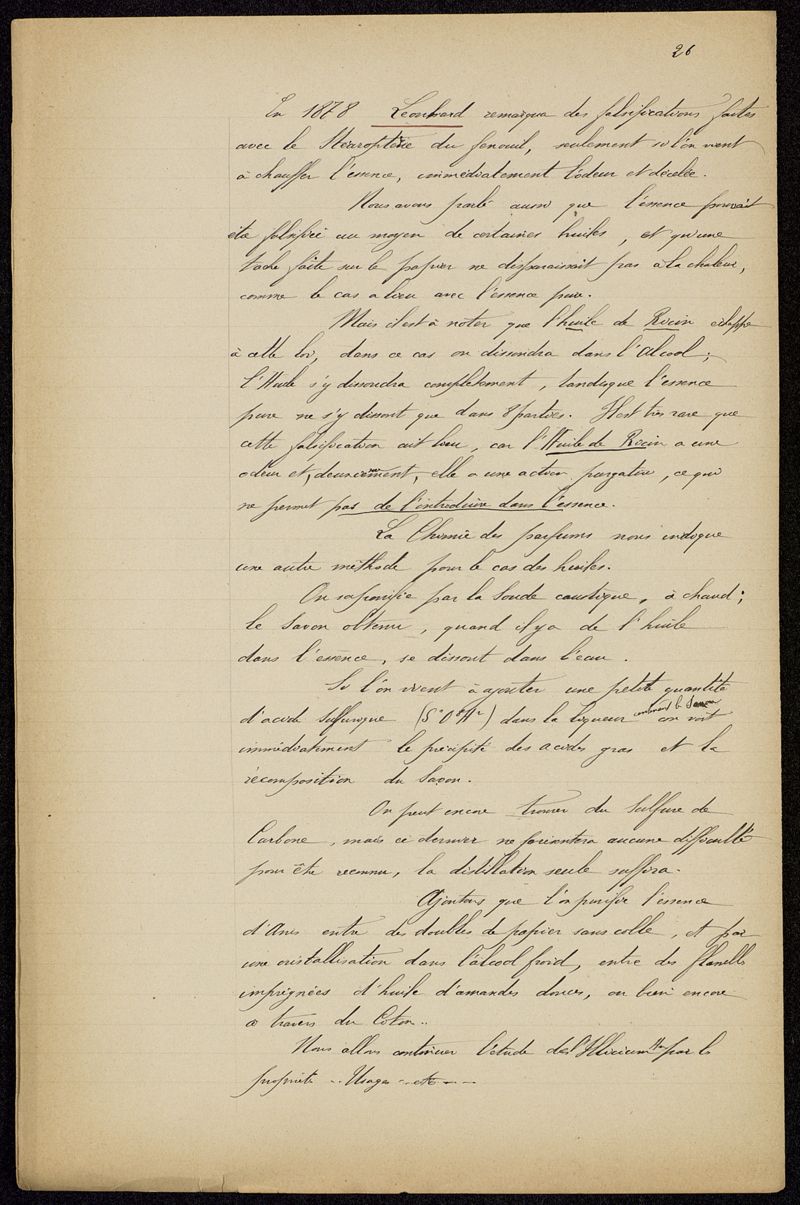 26
En 1878 Léonhard remarqua des falsifications faites
avec le Stéaroptène du fenouil, seulement si l'on vient
à chauffer l'essence, immédiatement l'odeur est décelée.
Nous avons parlé aussi que l'essence pouvait
être falsifiée au moyen de certaines huiles, et qu'une
tache faite sur le papier ne disparaissait pas à la chaleur,
comme le cas a lieu avec l'essence pure.
Mais il est à noter que l'huile de Ricin échappe
à cette loi, dans ce cas on dissoudra dans l'alcool ;
l'Huile s'y dissoudra complètement, tandis que l'essence
pure ne s'y dissout que dans 8 parties. Il est très rare que
cette falsification ait lieu, car l'Huile de Ricin a une
odeur et, elle a une action purgative, ce qui
ne permet pas de l'introduire dans l'essence.
La Chimie des parfums nous indique
une autre méthode pour le cas des huiles.
On saponifie par la Soude caustique, à chaud ;
le Savon obtenu, quand il y a de l'huile
dans l'essence, se dissout dans l'eau.
Si l'on vient à ajouter une petite quantité
d'acide Sulfurique (S²O⁸H²) dans la liqueur contenant le Savon on voit
immédiatement le précipité des acides gras et la
récomposition du Savon.
On peut encore trouver du Sulfure de
Carbone, mais ce dernier ne présentera aucune difficulté
pour être reconnu, la distillation seule suffira.
Ajoutons que l'on purifie l'essence
d'Anis entre des doubles de papier sans colle, et par
une cristallisation dans l'alcool froid, entre des flanelles
imprégnées d'huile d'amandes douces, ou bien encore
à travers du Coton..
Nous allons continuer l'étude de l'Illicium par les
propriétés .. Usages .. etc - - -